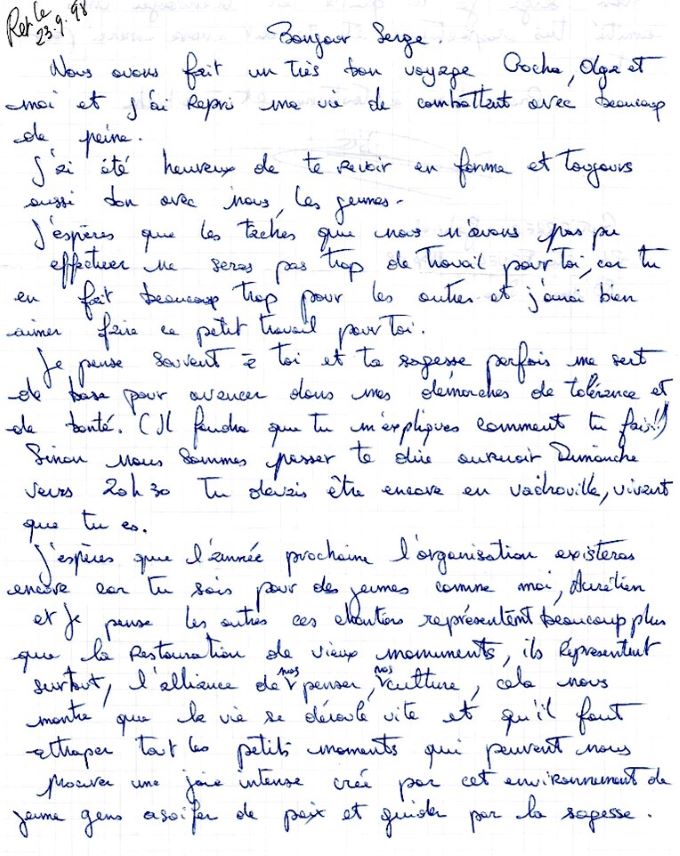 Rep le
23.9.98
Bonjour Serge.
Nous avons fait un très bon voyage Cocha, Olga et
moi et j'ai repri ma vie de combattent avec beaucoup
de peine.
J'ai été heureux de te revoir en forme et toujours
aussi bon avec nous, les jeunes.
J'espères que les taches que nous n'avons pas pu
effectuer ne seras pas trop de travail pour toi, car tu
en fait beaucoup trop pour les autres et j'aurai bien
aimer faire ce petit travail pour toi.
Je pense souvent à toi et ta sagesse parfois me sert
de base pour avancer dans mes démarches de tolérence et
de bonté. (Il faudra que tu m'expliques comment tu fais!!)
Sinon nous sommes passer te dire aurevoir Dimanche
vers 20h30 Tu devais être encore en vadrouille, vivent
que tu es.
J'espères que l'année prochaine l'organisation existeras
encore car tu sais pour des jeunes comme moi, Aurélien
et je pense les autres ces chantiers représentent beaucoup plus
que la restauration de vieux monuments, ils représentent
surtout, l'alliance de nos penser, nos culture, cela nous
montre que la vie se déroule vite et qu'il faut
attraper tout les petits moments qui peuvent nous
procurer une joie intense crée par cet environnement de
jeune gens asoifer de paix et guider par la sagesse.